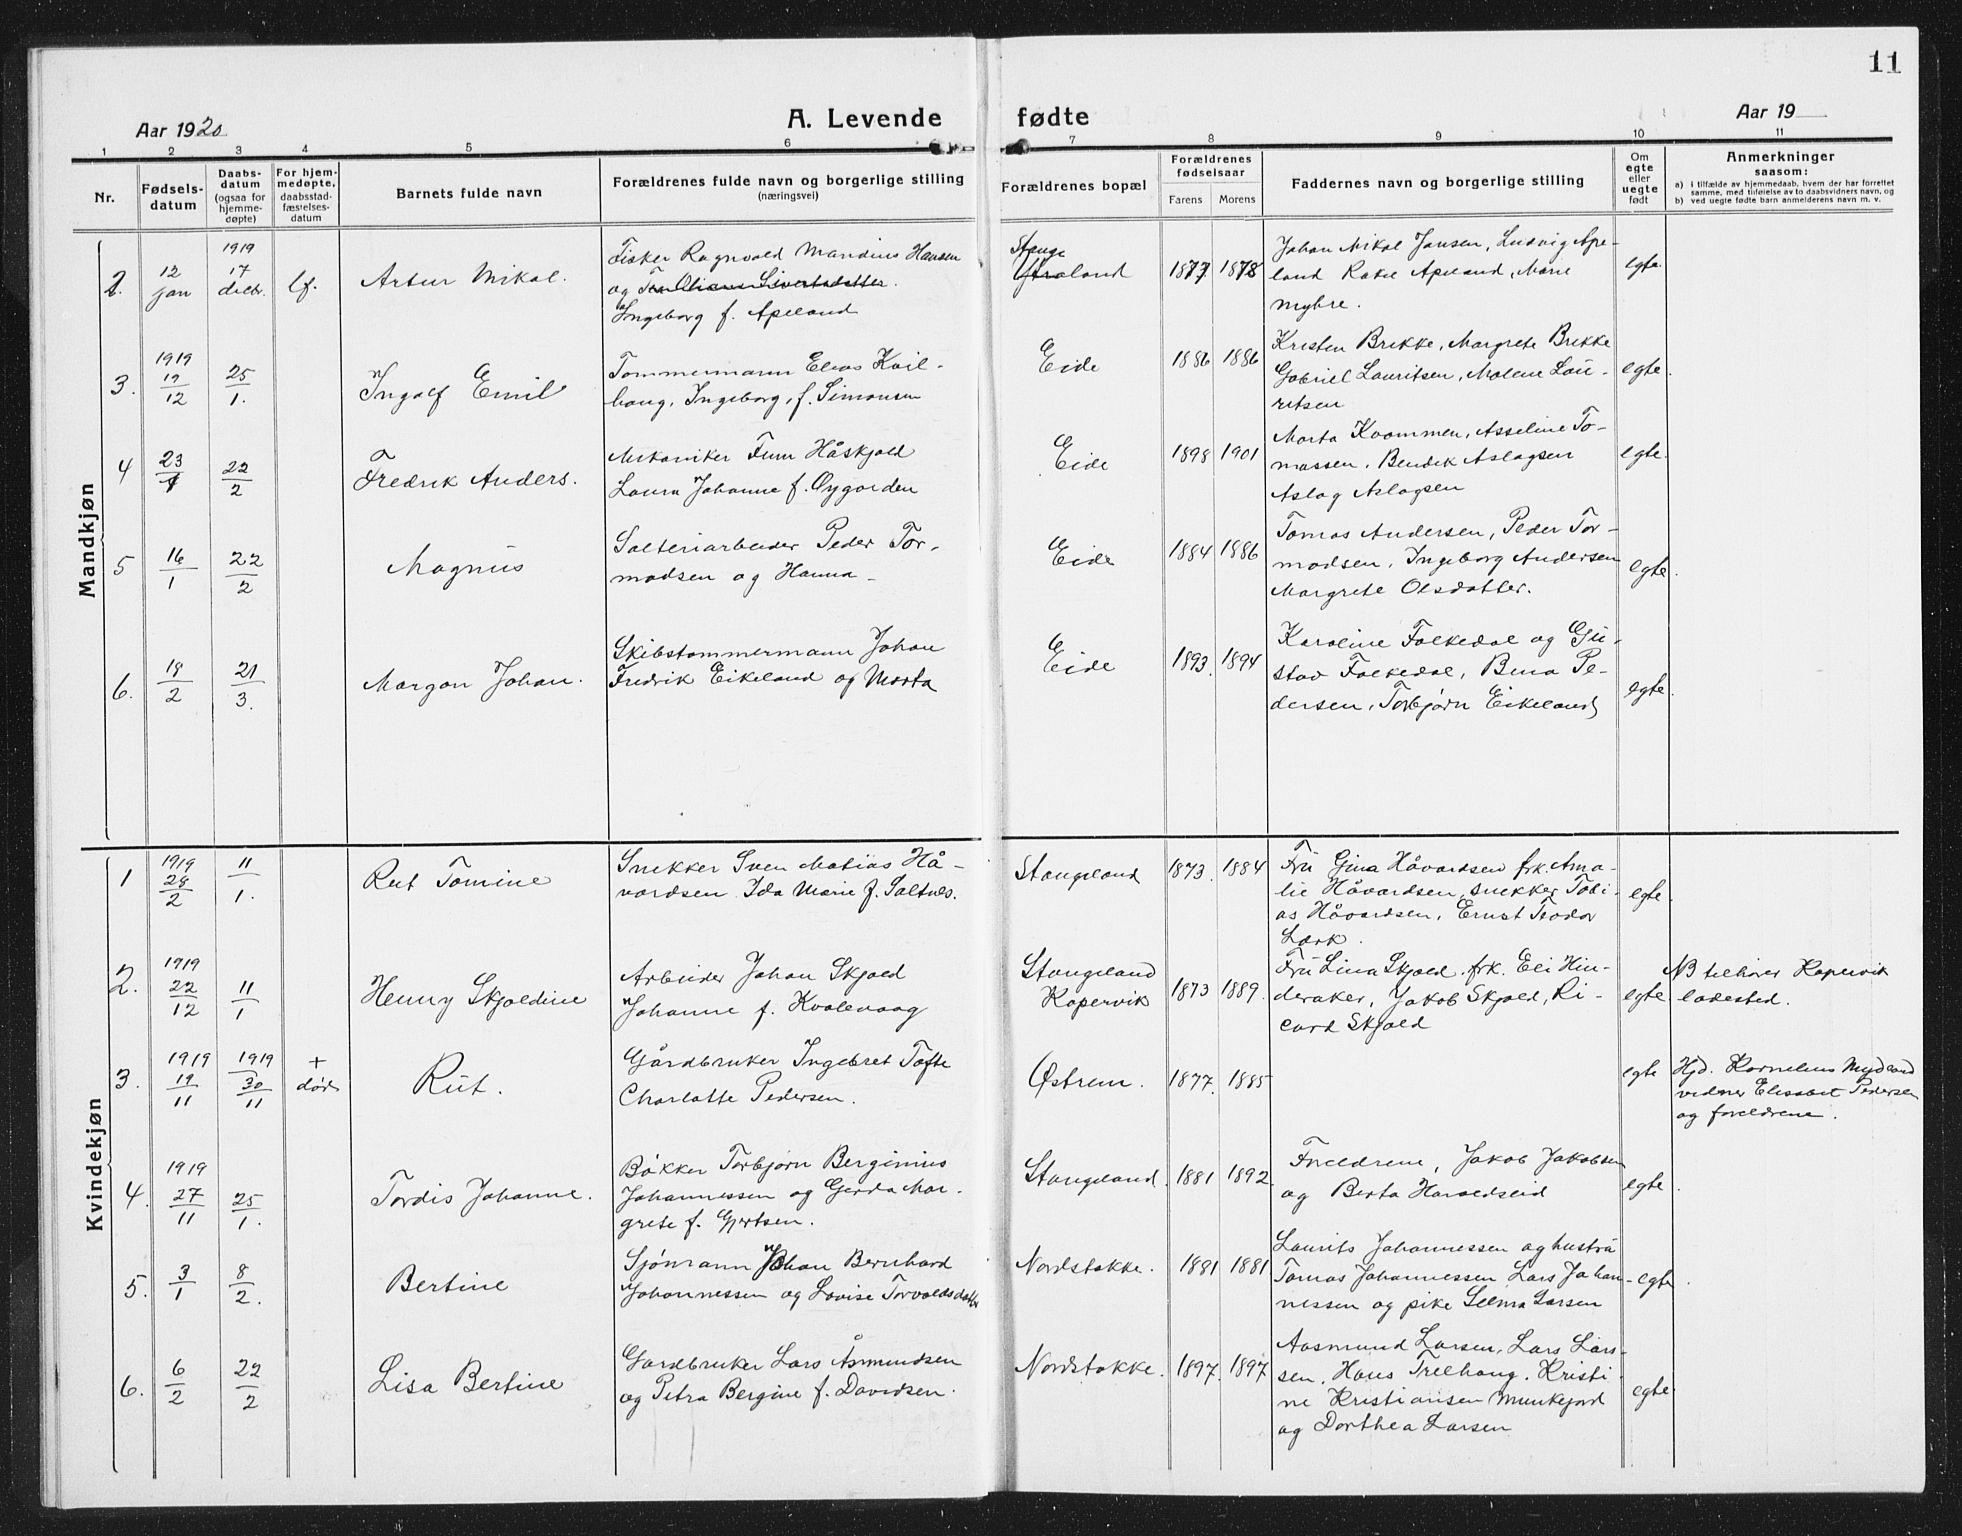 11
Aar 1920
A. Levende fødte
Aar 19
1 2 3 4 5 6 7 8 9 10 11
Nr.
Fødsels-
datum
Daabs-
datum
(ogsaa for
hjemme-
døpte)
For hjem-
medøpte,
daabsstad-
fæstelses-
datum
Barnets fulde navn
Forældrenes fulde navn og borgerlige stilling
(næringsvei)
Forældrenes bopæl
Forældrenes
fødselsaar
Farens Morens
Faddernes navn og borgerlige stilling
Om
egte
eller
uegte
født
Anmerkninger
saasom:
a) i tilfælde av hjemmedaab, hvem der har forrettet
samme, med tilføielse av to daabsvidners navn, og
b) ved uegte fødte barn anmelderens navn m. v.
Mandkjøn
2.
12
jan
1919
17
decbr.
lf.
Artur Nikal.
Fisker Ragnvald Mandius Hansen
og Tea Oliane Sivertsdatter.
Ingeborg f. Apeland
Stange
land
1877 1878
Johan Nikal Jansen, Ludvig Ape-
land Rakel Apeland, Marie
Myhre.
egte.
3.
1919
19
12
25
1.
Ingolf Emil
Tømmermann Elias Kvil-
haug, Ingeborg, f. Simonsen
Eide
1886 1886
Kristen Brekke, Margrete Brekke
Gabriel Lauritsen, Malene Lau-
ritsen
egte.
4
23
1
22
2
Fredrik Anders.
Mekaniker Finn Håskjold
Laura Johanne f. Øygarden
Eide
1898 1901
Marta Kvammen, Asseline To-
massen, Bendik Aslagsen
Aslag Aslagsen
egte.
5
16
1
22
2
Magnus
Salteriarbeider Peder Tor-
madsen og Hanna -
Eide
1884 1886
Tomas Andersen, Peder Tor-
modsen, Ingeborg Andersen
Margrete Olsdatter.
egte.
6.
18
2
21
3.
Margon Johan.
Skibstømmermann Johan
Fredrik Eikeland og Marta
Eide
1893. 1894
Karoline Falkedal og Gu-
stav Falkedal, Bena Pe-
dersen, Torbjørn Eikeland
egte.
Kvindekjøn
1
1919
28
2
11
1.
Rut Tomine
Snekker Sven Matias Hå-
vardsen Ida Marie f. Saltnes.
Stangeland
1873. 1884
Fru Gina Håvardsen frk. Ama-
lie Håvardsen, snekker Tobi-
as Håvardsen, Ernst Teodor
Lærk.
egte.
2.
1919
22
12
11
1
Henny Skjoldine
Arbeider Johan Skjold
Johanne f. Kvalevaag
Stangeland
Kopervik
1873 1889.
Fru Lina Skjold. frk. Eli Hin-
deraker, Jakob Skjold, Ri-
card Skjold
egte.
NB tilhører Kopervik
ladested.
3.
1919
19
11
1919
30
11
+
død
Rut.
Gårdbruker Ingebret Tofte
Charlotte Pedersen.
Østrem.
1877. 1885
egte
Hjd. Kornelius Mydland
vidner Elisabet Pedersen
og foreldrene.
4.
1919
27
11
25
1.
Tordis Johanne.
Bøkker Torbjørn Berginius
Johannessen og Gerda Mar-
grete f. Gjertsen.
Stangeland.
1881 1892.
Foreldrene, Jakob Jakobsen
og Berta Haraldseid
egte.
5.
3
1
8
2.
Bertine
Sjømann Johan Bernhard
Johannessen og Lovise Torvaldsdatter
Nordstokke.
1881 1881
Laurits Johannessen og hustru
Tomas Johannessen, Lars Johan-
nessen og pike Selma Larsen
egte.
6.
6
2
22
2
Lisa Bertine
Gardbruker Lars Åsmundsen
og Petra Bergine f. Davidsen.
Nordstokke.
1897. 1897
Aasmund Larsen, Lars Lars-
sen, Hans Trelhaug, Kristi-
ne Kristiansen Munkejord
og Dorthea Larsen
egte.